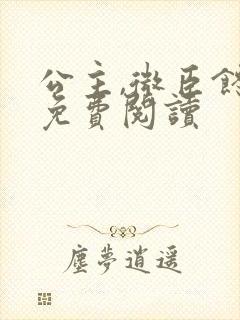 公主,微臣
免費閱讀
塵夢逍遥